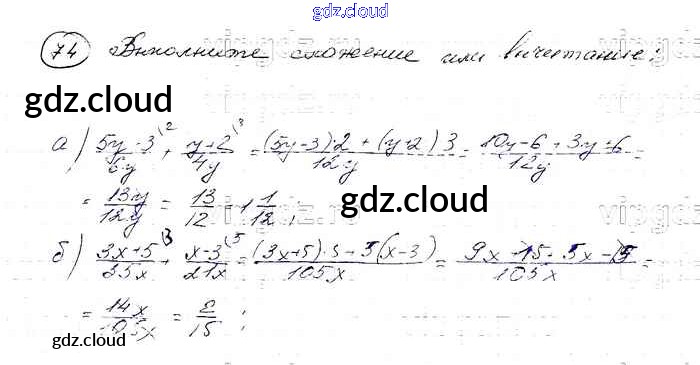 gdz.cloud
74 Выполните сложение или вычитание:
gdz.cloud
а) (5y-3)/6y \2 + (y+2)/4y \3 = ((5y-3)·2+(y+2)3)/12y = (10y-6+3y+6)/12y =
= 13y/12y = 13/12 = 1 1/12 ;
gdz.cloud
б) (3x+5)/35x \3 + (x-3)/21x \5 = ((3x+5)·3+5(x-3))/105x = (9x+15+5x-15)/105x =
= 14x/105x = 2/15 ;
gdz.cloud